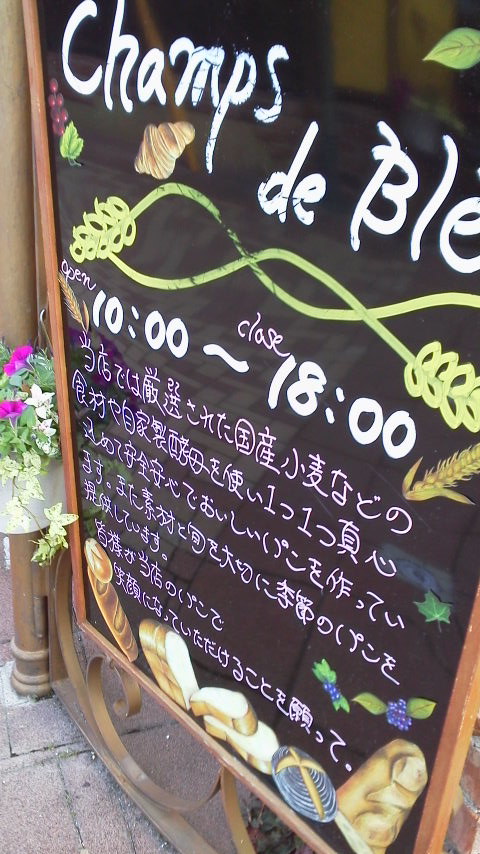 Champs
de Blé
open
close
10:00 〜 18:00
当店では厳選された国産小麦などの
食材や自家製酵母を使い1つ1つ真心
込めて安全安心でおいしいパンを作ってい
ます。また素材と旬を大切に季節のパンを
提供しています。
皆様が当店のパンで
笑顔になっていただけることを願って。